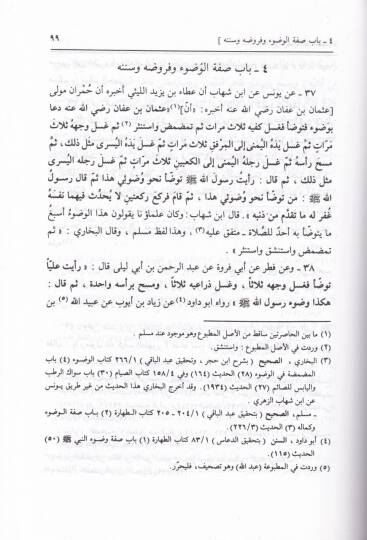 ٤ ـ باب صفة الوضوء وفروضه وسننه ] ٩٩
٤ ـ باب صفة الوُضوء وفروضه وسننه
٣٧ ـ عن يونس عن ابن شهاب أن عطاء بن يزيد الليثي أخبره أن حُمْران مولى
[عثمان بن عفان رضي الله عنه أخبره: «أنّ](١)«عثمان بن عفان رضي الله عنه دعا
بوَضوء فتوضأ فغسل كفيه ثلاث مرات ثم تمضمض واستنثر(٢) ثم غسل وجهه ثلاثَ
مَرّاتٍ ثمّ غسل يَدَهُ اليُمنى إلى المِرْفق ثلاثَ مَرّاتٍ ثمّ غَسَلَ يَدَهُ اليسرى مثل ذلك ، ثمّ
مسحَ رأسهُ ثمّ غَسَلَ رِجلهُ اليُمنى إلى الكعبينِ ثلاثَ مرّاتٍ ثمّ غَسَلَ رجله اليسرى
مثل ذلك ، ثم قال : رأيتُ رسولَ الله ﷺ توضّأ نحو وُضوئي هذا ثمّ قال رسولُ
الله ﷺ : من توضّأ نحو وُضوئي هذا ، ثمّ قامَ فركعَ ركعتينِ لا يُحدِّث فيهما نفسَهُ
غُفر له ما تقدَّم من ذنبه» . قال ابن شهاب: وكان علماؤنا يقولون هذا الوُضوءُ أسبغُ
ما يتوضّأ به أحدٌ للصَّلاة ـ متفق عليه(٣) ، وهذا لفظ مسلم ، وقال البخاري : «ثم
تمضمض واستنشق واستنثر» .
٣٨ ـ وعن فطر عن أبي فروة عن عبد الرحمن بن أبي ليلى قال : «رأيت عليّاً
توضّأ فغسل وجهه ثلاثاً ، وغسل ذراعيه ثلاثاً ، ومسح برأسه واحدة ، ثم قال :
هكذا توضأ رسول الله ﷺ» رواه أبو داود(٤) عن زياد بن أيوب عن عبيد الله(٥) بن
(١) ما بين الحاصرتين ساقط من الأصل المطبوع وهو موجود عند مسلم .
(٢) وردت في الأصل المطبوع : واستنشق.
(٣) البخاري ، الصحيح ( بشرح ابن حجر ، وتحقيق عبد الباقي ) ٢٦٦/١ كتاب الوضوء (٤) باب
المضمضة في الوضوء (٢٨) الحديث (١٦٤) وفي ١٥٨/٤ كتاب الصيام (٣٠) باب سواك الرطب
واليابس للصائم (٢٧) الحديث (١٩٣٤). وقد أخرج البخاري هذا الحديث من غير طريق يونس
عن ابن شهاب الزهري .
ـ مسلم، الصحيح ( بتحقيق عبد الباقي ) ٢٠٤/١ ـ ٢٠٥ كتاب الطهارة (٢) باب صفة الوضوء
وكماله (٣) الحديث (٢٢٦/٣) .
(٤) أبو داود ، السنن ( بتحقيق الدعاس ) ٨٣/١ كتاب الطهارة (١) باب صفة وضوء النبي ﷺ (٥٠)
الحديث (١١٥) .
(٥) وردت في المطبوعة (عبد الله) وهو تصحيف، فليحرّر.